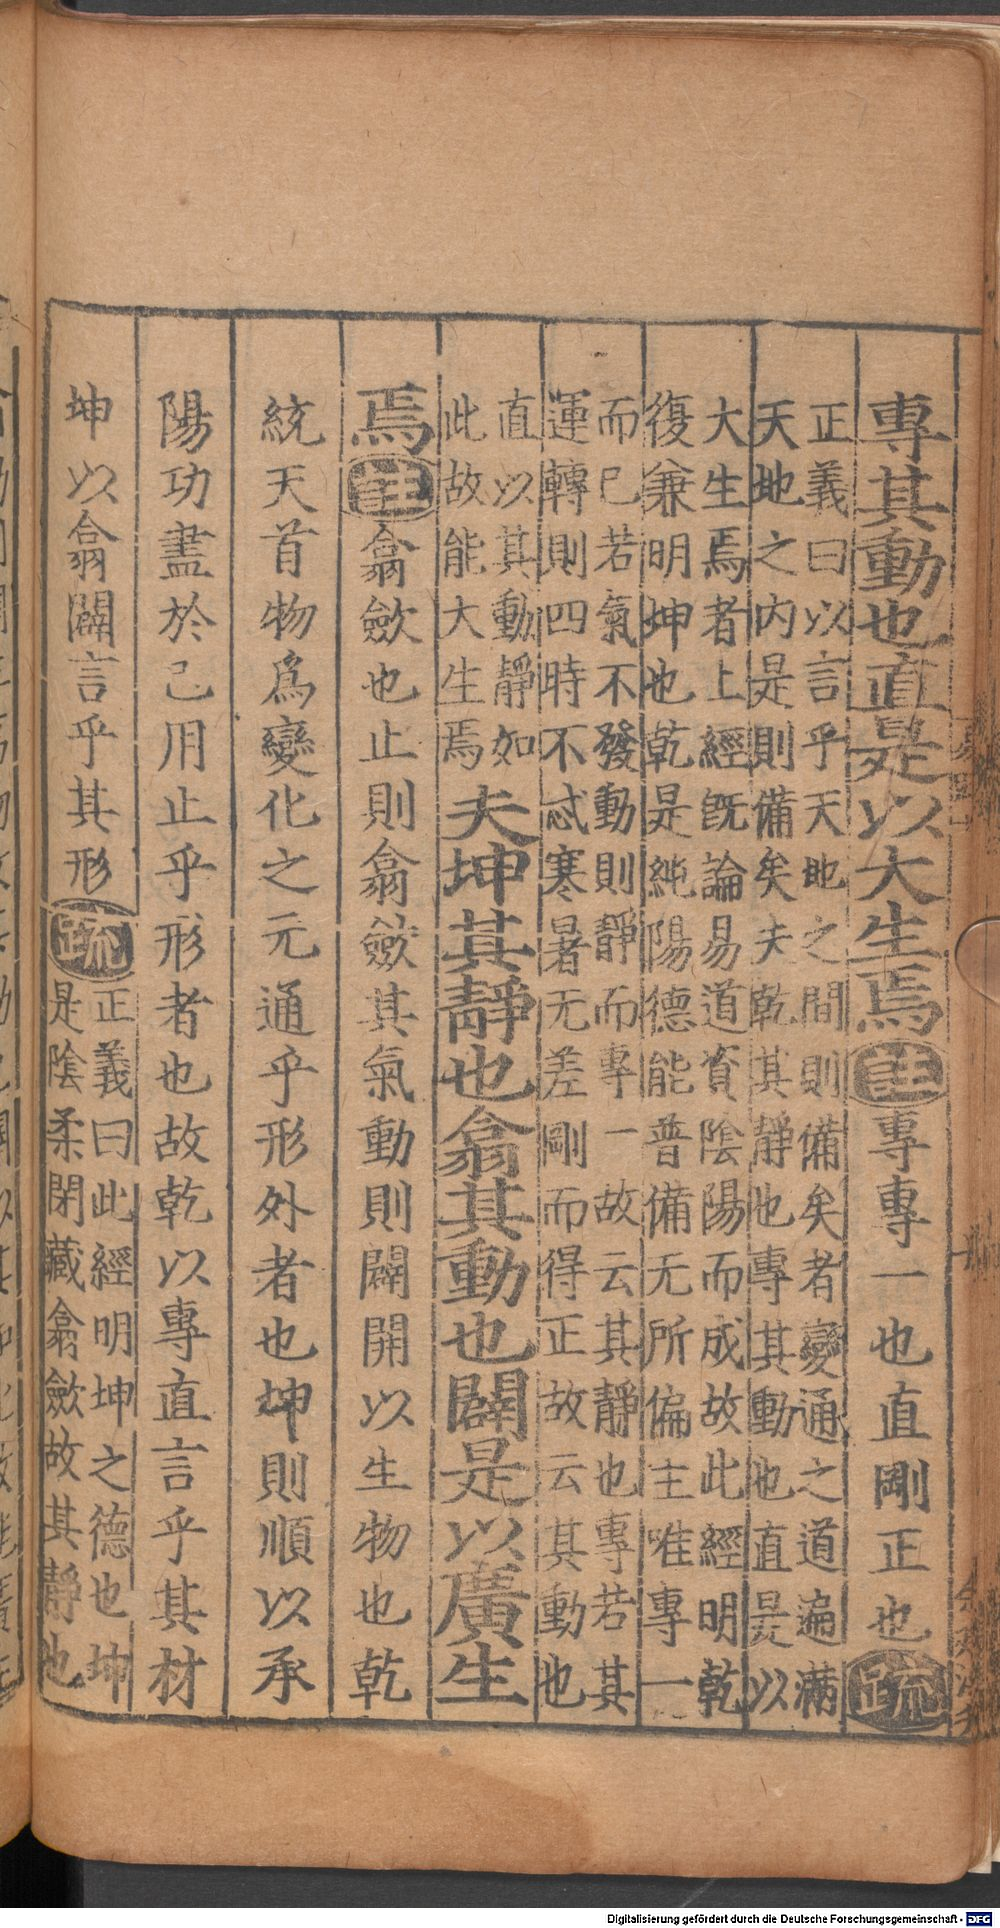 專其動也直是以大生焉註專專一也直剛正也疏
正義曰以言乎天地之間則備矣者變通之道遍滿
天地之內是則備矣夫乾其靜也專其動也直是以
大生焉者上經旣論易道資陰陽而成故此經明乾
復兼明坤也乾是純陽德能普備无所偏主唯專一
而已若氣不發動則靜而專一故云其靜也專若其
運轉則四時不忒寒暑无差剛而得正故云其動也
直以其動靜如
此故能大生焉
夫坤其靜也翕其動也闢是以廣生
焉註翕斂也止則翕斂其氣動則闢開以生物也乾
統天首物爲變化之元通乎形外者也坤則順以承
陽功盡於己用止乎形者也故乾以專直言乎其材
坤以翕闢言乎其形疏
正義曰此經明坤之德也坤
是陰柔閉藏翕斂故其靜也
Digitalisierung gefördert durch die Deutsche Forschungsgemeinschaft - DFG